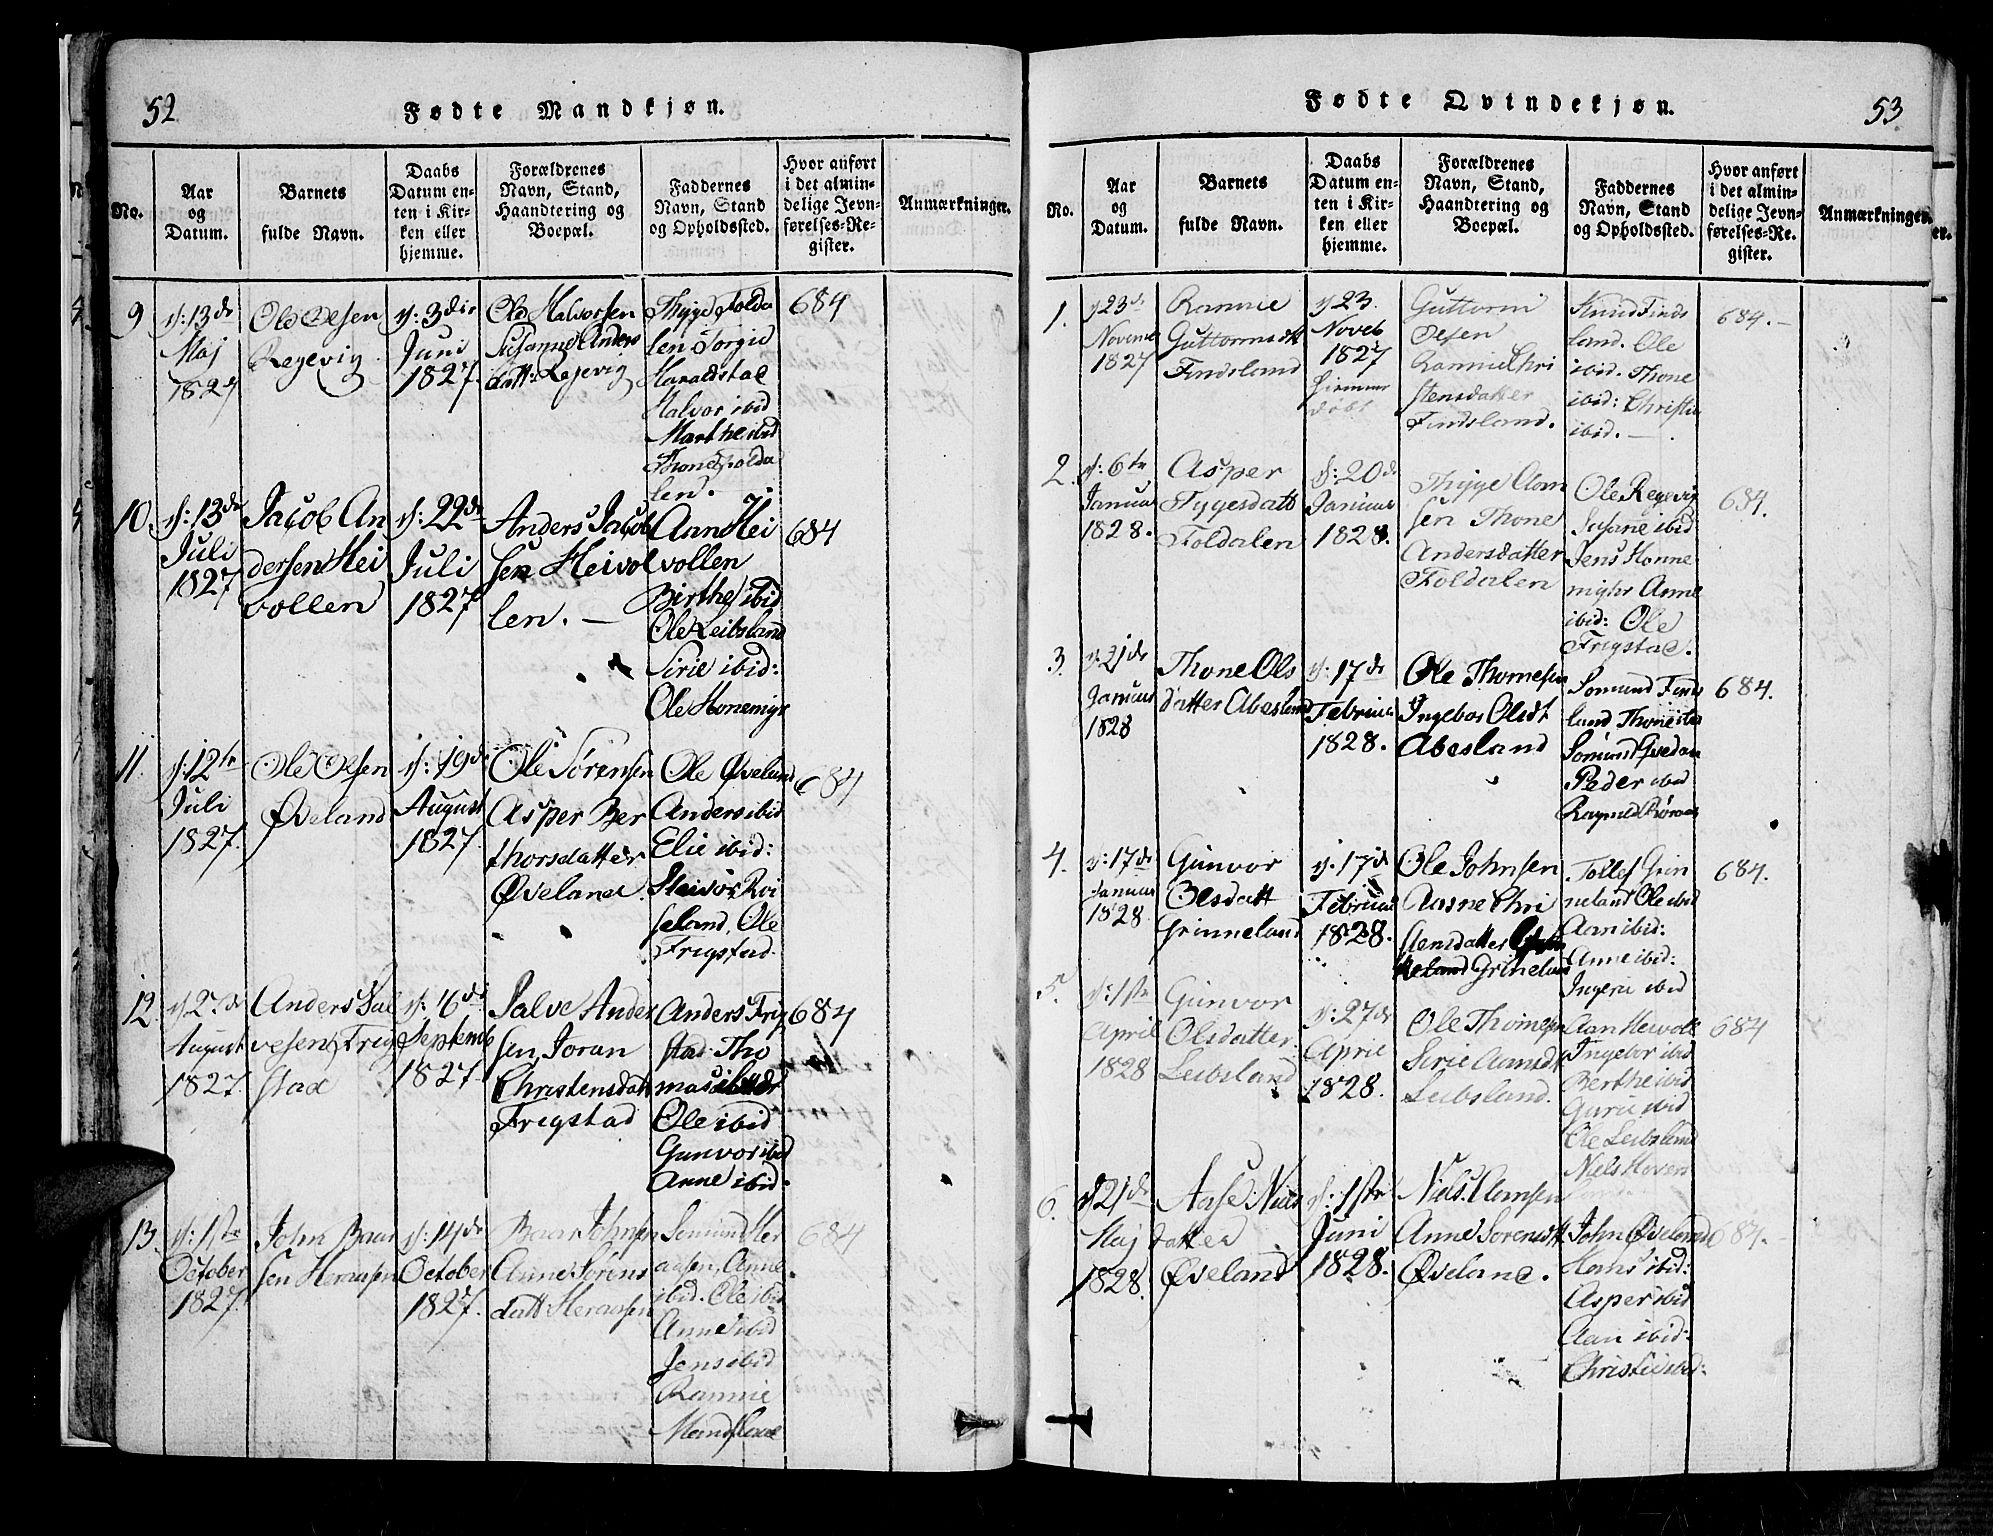 52
Fødte Mandkjøn.
No.
Aar
og
Datum.
Barnets
fulde Navn.
Daabs
Datum en-
ten i Kir-
ken eller
hjemme.
Forældrenes
Navn, Stand,
Haandtering og
Boepæl.
Faddernes
Navn, Stand
og Opholdssted.
Hvor anført
i det almin-
delige Jevn-
førelses-Re-
gister.
Anmærkninger.
9
d: 13de
Maj
1827
Ole Olsen
Regevig
d: 3die
Juni
1827
Ole Halvorsen
Susanne Anders
datt: Regevig
Thyge Folda
len Torgie
Haraldstad
Halvor ibid
Marthe ibid
Thone Folda
len.
684
10
d: 13de
Juli
1827
Jacob An
dersen Hei
vollen
d: 22de
Juli
1827
Anders Jacob
sen Heivol
len. —
Aan Hei
vollen
Birthe ibid
Ole Leibsland
Sirie ibid:
Ole Honemyr
684
11.
d: 12te
Juli
1827.
Ole Olsen
Øveland
d: 19de
August
1827.
Ole Sørensen
Asper Ber
thorsdatter
Øveland.
Ole Øveland
Anders ibid
Elie ibid:
Steivor Roi
seland, Ole
Frigstad.
684
12
d 2de
August
1827.
Anders Sal
vesen Frig
stad
d: 16de
Septemb
1827.
Salve Ander
sen, Joran
Christensdatt
Frigstad
Anders Frig
stad Tho
mas
Ole ibid
Gunvor ibid
Anne ibid.
684
13.
d: 1ste
October
1827.
John Baar
sen Heraasen
d: 14de
October
1827.
Baar Johnsen
Anne Sørens
datt Heraasen
Somund Her
aasen, Anne
ibid. Ole ibid
Anne ibid
Jens ibid
Rannie
684
53
Fødte Qvindekjøn.
No.
Aar
og
Datum.
Barnets
fulde Navn.
Daabs
Datum en-
ten i Kir-
ken eller
hjemme.
Forældrenes
Navn, Stand,
Haandtering og
Boepæl.
Faddernes
Navn, Stand
og Opholdssted.
Hvor anført
i det almin-
delige Jevn-
førelses-Re-
gister.
Anmærkninger.
1.
d 23de
Novemb
1827
Rannie
Guttormsdatt
Findsland
d 23.
Noveb
1827
hiemme
døbt
Guttorm
Olsen
Rannie Chri
stensdatter
Findsland.
Knud Finds
land. Ole
ibid. Thone
ibid: Christie
ibid. —
684. -
2.
d: 6te
Januar
1828.
Asper
Tygesdatt
Foldalen
d: 20de
Januar
1828.
Thyge Aan
sen Thone
Andersdatter
Foldalen
Ole Regevig
Susane ibid
Jens Honne
myhr Anne
ibid: Ole
Frigstad.
684.
3.
d. 21de
Januar
1828
Thone Ols
datter Abesland
d: 17de
Februar
1828.
Ole Thomesen
Ingebor Olsdt
Abesland
Somund Finds
land Thone
Somund Qvedan
Peder ibid
684.
4.
d: 17de
Januar
1828.
Gunvor
Olsdatt
Grinneland
d: 17de
Februar
1828.
Ole Johnsen
Aasne Chri
stensdatter
Grineland
Tollef Grin
neland Ole ibid
Aan ibid:
Anne ibid:
Ingerie ibid
684.
5.
d: 1ste
April
1828
Gunvor
Olsdatter
Leibsland
d: 27de
April
1828.
Ole Thomesen
Sirie Aansdt
Leibsland.
Aan Heivoll
Ingebor ibid
Berthe ibid
Gurie ibid
Ole Leibsland
Niels Hoven
684
6.
d 21de
Maj
1828.
Aase Niels
datter
Øveland
d: 1ste
Juni
1828.
Niels Aansen
Anne Sorensdtt
Øveland.
John Øveland
Hans ibid:
Asper ibid
Aan ibid:
Christie ibid:
684. -